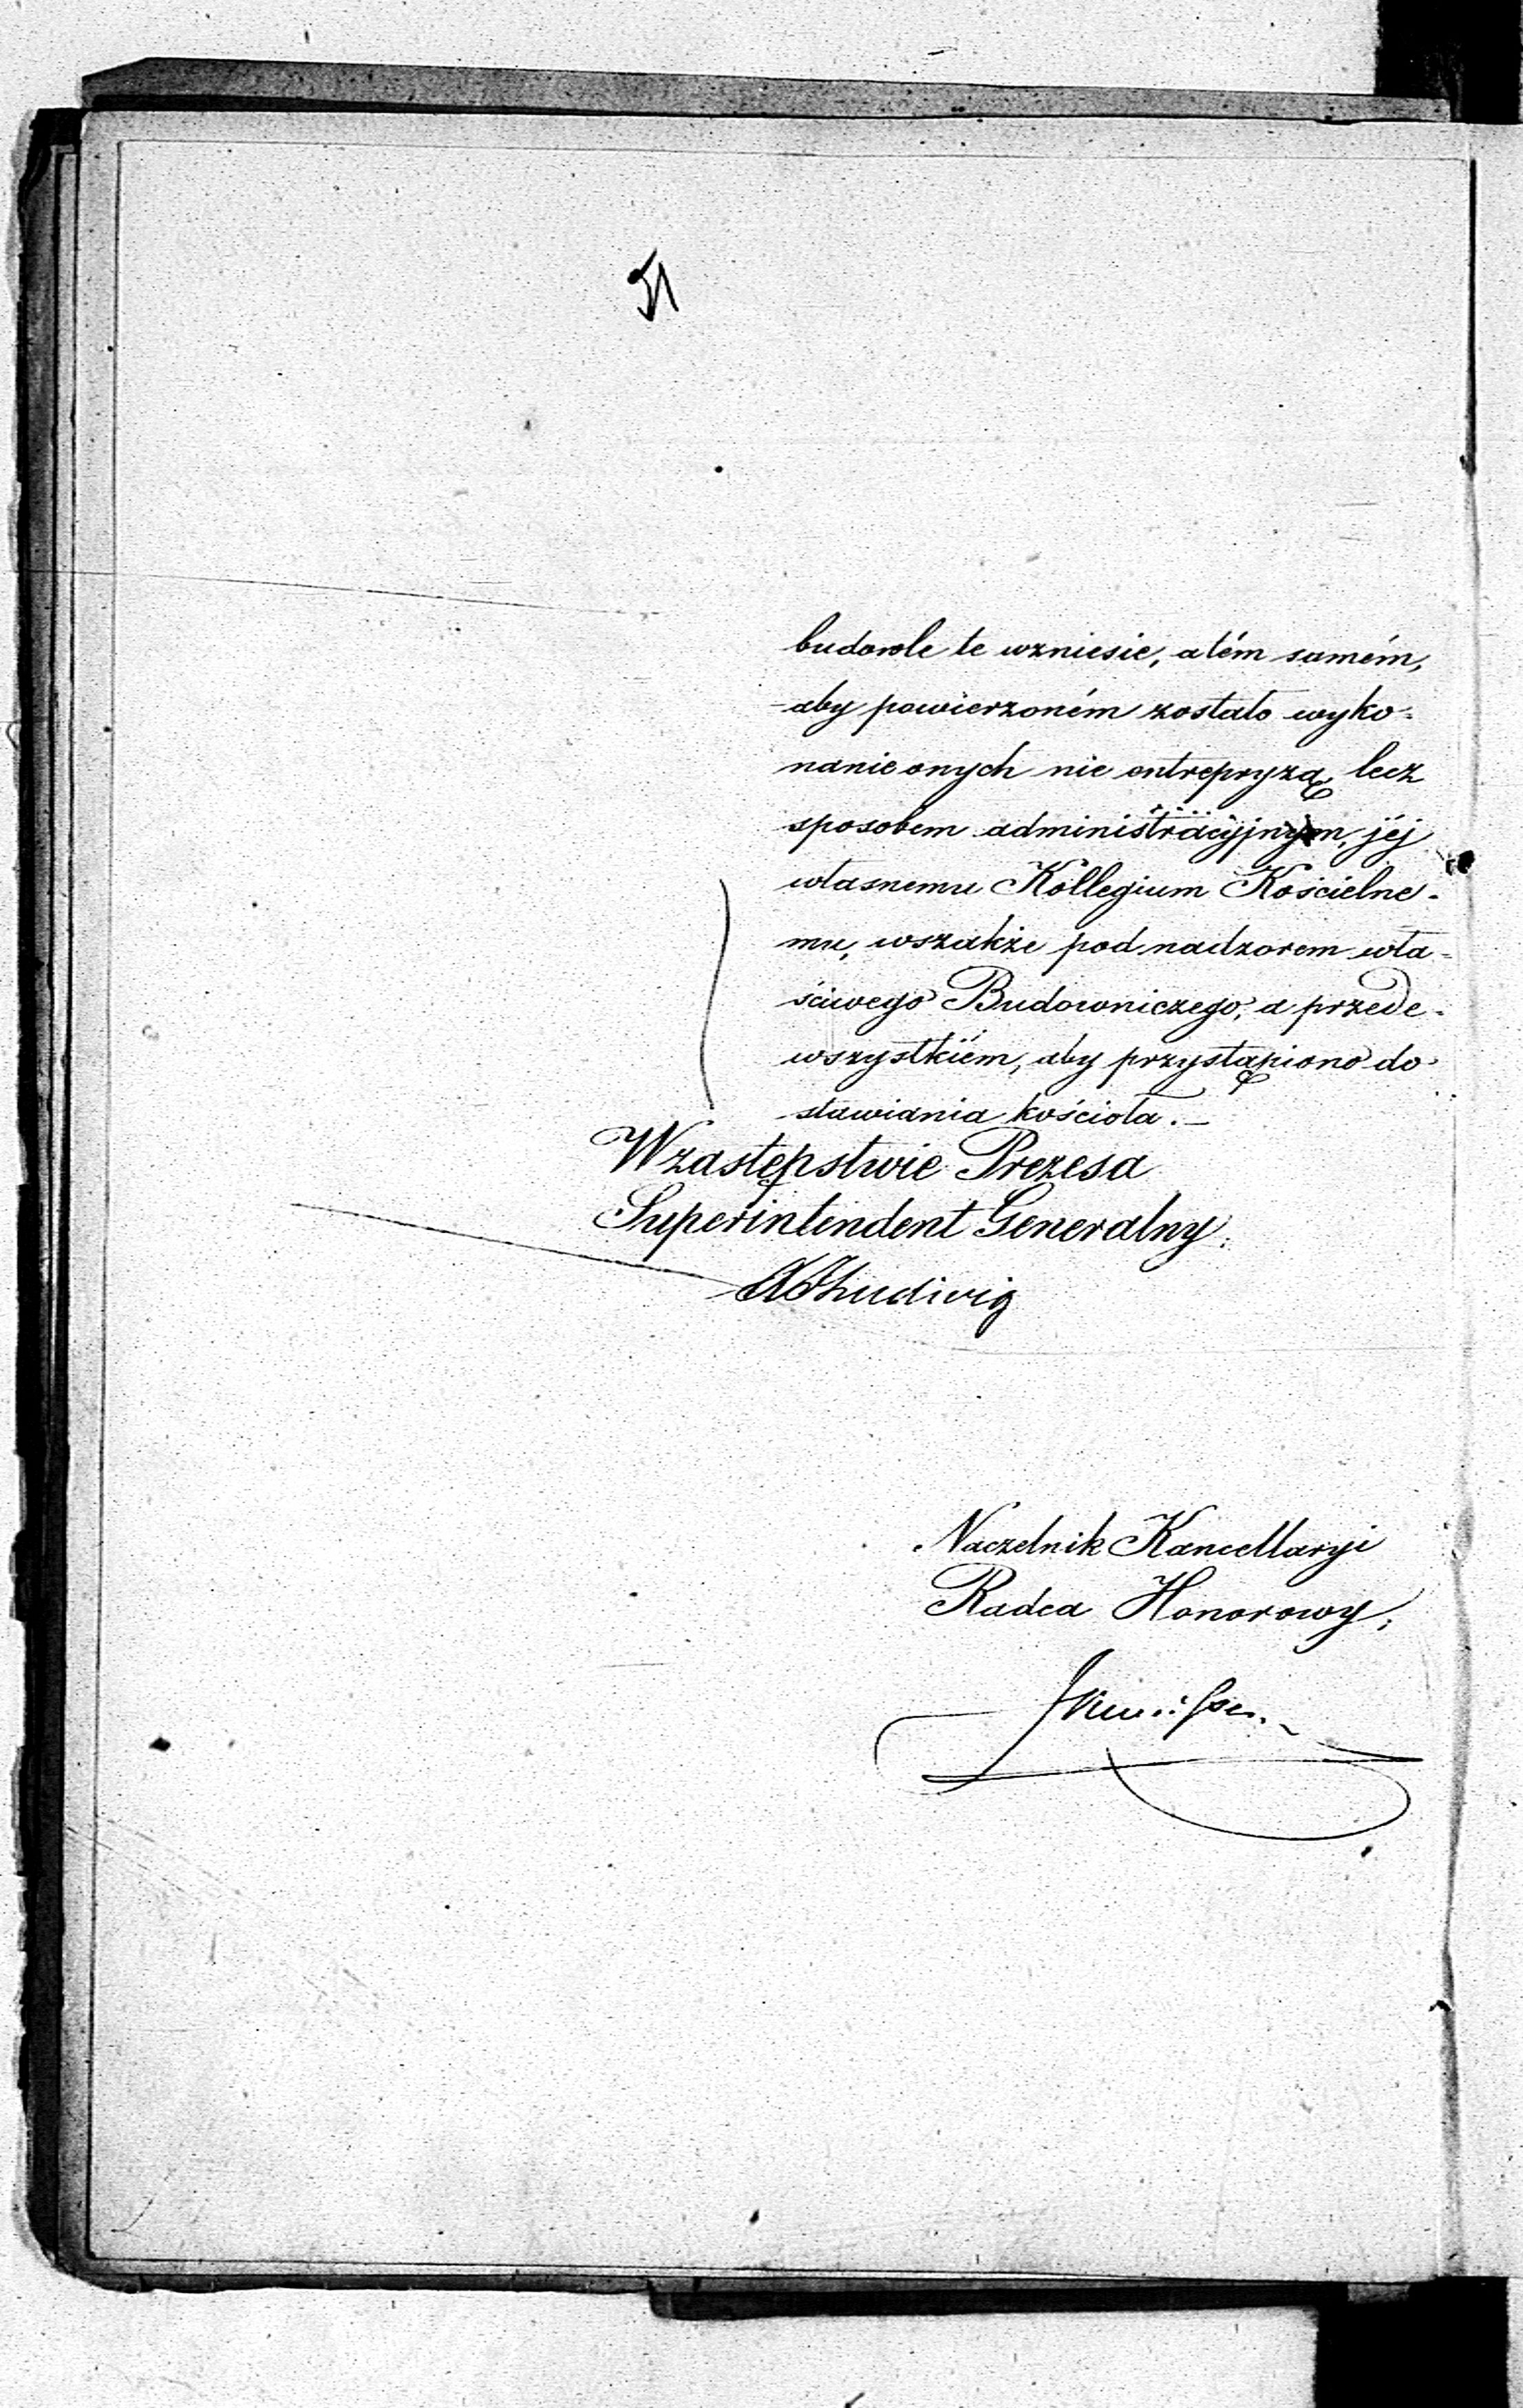 51
budowle te wzniesie, a tém samém,
aby powierzoném zostało wyko-
nanie onych nie entrepryzą lecz
sposobem administracyjnym, jéj
własnemu Kollegium Kościelne-
mu, wszakże pod nadzorem wła-
ściwego Budowniczego, a przede-
wszystkiém, aby przystąpiono do
stawiania kościoła.
W zastępstwie Prezesa
Superintendent Generalny,
Ludwig
Naczelnik Kancellaryi
Radca Honorowy,